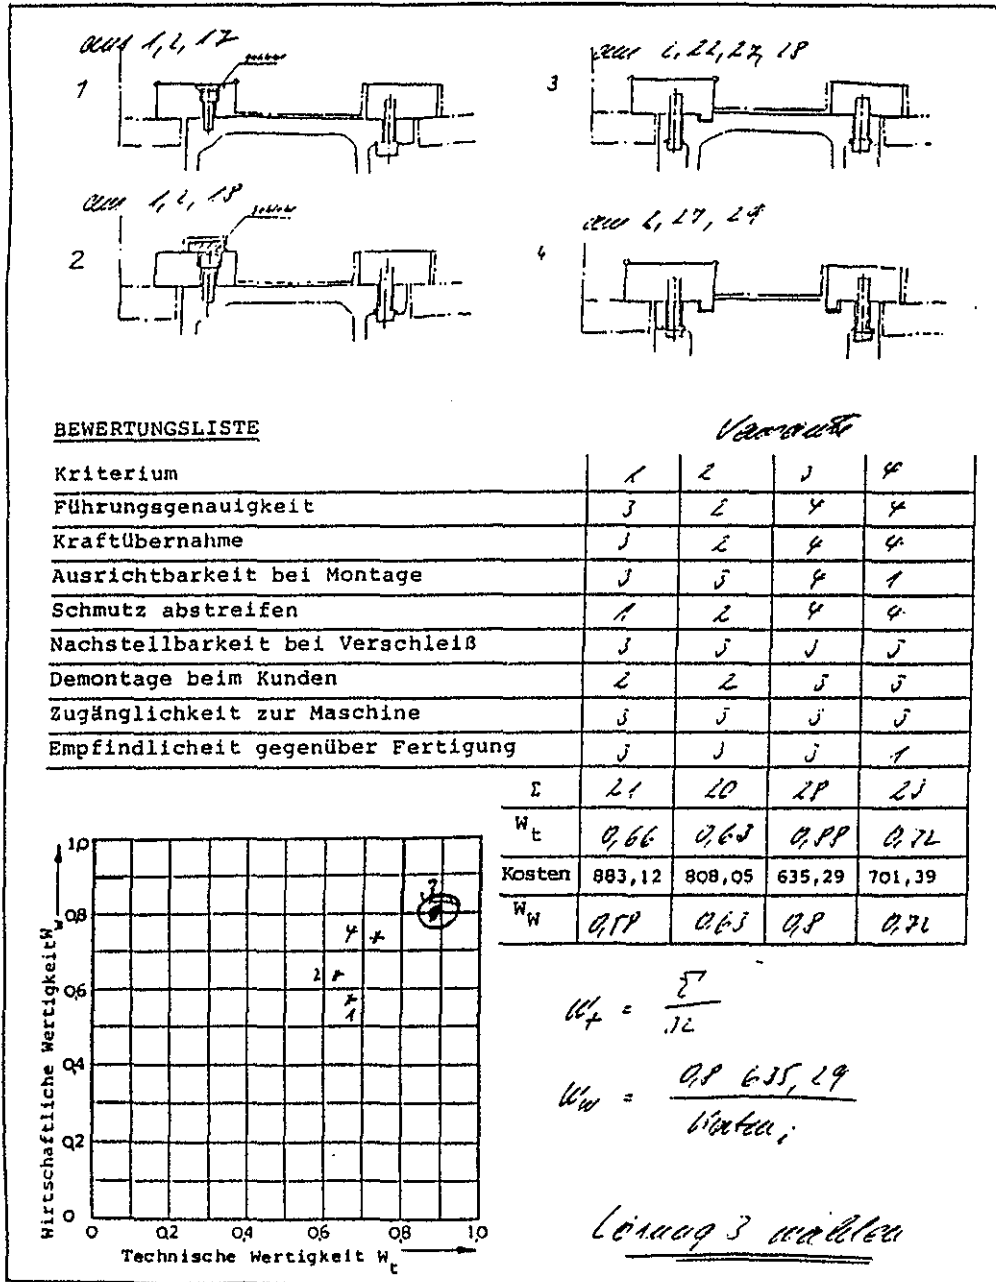 aus 1, 2, 17
1
aus 1, 2, 18
2
3
4
BEWERTUNGSLISTE
Variante
Kriterium 1 2 3 4
Führungsgenauigkeit 3 2 4 4
Kraftübernahme 3 2 4 4
Ausrichtbarkeit bei Montage 3 3 4 1
Schmutz abstreifen 1 2 4 4
Nachstellbarkeit bei Verschleiß 3 3 3 3
Demontage beim Kunden 2 2 3 3
Zugänglichkeit zur Maschine 3 3 3 3
Empfindlicheit gegenüber Fertigung 3 3 3 1
Σ 21 20 28 23
Wt 0,66 0,63 0,88 0,72
Kosten 883,12 808,05 635,29 701,39
WW 0,58 0,63 0,8 0,72
Wirtschaftliche Wertigkeit Ww
1,0
0,8
0,6
0,4
0,2
0
0 0,2 0,4 0,6 0,8 1,0
Technische Wertigkeit Wt
3
4
2
1
Wt = Σ / 32
Ww = 0,8 635,29 / Kosten i
Lösung 3 wählen